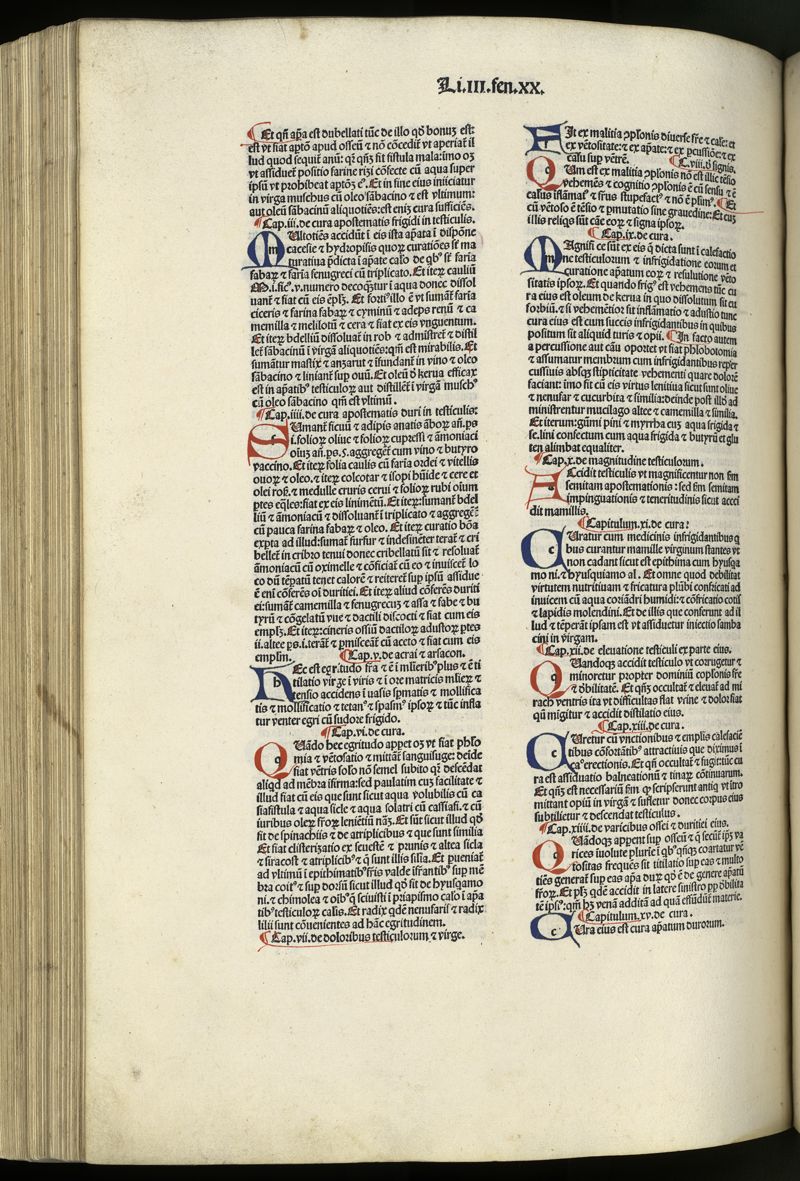 Li.III.fen.XX.
Et qñ apa est dubellati tūc de illo qď bonuʒ est:
est ut fiat aptō apud osseū & nō cōcedit̄ vt aperiat̄ il
lud quod sequit̄ anū: qꝛ qñʒ fit fistula mala: imo oʒ
vt assiduet̄ positio farine riʒi cōfecte cū aqua super
ipsū vt prohibeat aptōʒ eiꝰ. Et in fine eius iniiciatur
in virga muschus cū oleo sābacino & est vltimum:
aut oleū sābacinū aliquotiēs: est enīʒ cura sufficiēs.
Cap.iii. de cura apostematis frigidi in testiculis.
MUltotiēs accidūt ī eis ista apata ī dispōne
cacesie & hydropisis quoꝝ curatiōes sꝛ ma
turatiua p̄dicta ī apate calō de qbꝰ sꝛ farīa
fabaꝝ & farīa fenugreci cū triplicato. Et iteꝝ cauliū
M.i.ficꝰ.v. numero decoqt̄ur ī aqua donec dissol
uant̄ & fiat cū eis ēplʒ. Et fortiꝰ illo ē vt sumāt farīa
ciceris & farina fabaꝝ & cyminū & adeps renū & ca
memilla & melilotū & cera & fiat ex eis vnguentum.
Et iteꝝ bdelliū dissoluat̄ in rob & admistret̄ & distil
let̄ sābacinū ī virgā aliquotiēs: qm̄ est mirabilis. Et
sumātur mastix & anʒarut & īfundant̄ in vino & oleo
sābacino & liniant̄ sup ouū. Et oleū ď kerua efficax
est in apatibꝰ testiculoꝝ aut distillet̄ ī virgā muschꝰ
cū oleo sābacino qm̄ est vltimū.
Cap.iiii. de cura apostematis duri in testiculis:
SUmant̄ ficuū & adipis anatis āboꝝ añ.ꝑs
i. folioꝝ oliue & folioꝝ cupressi & āmoniaci
oīuʒ añ.ꝑs.s. aggreget̄ cum vino & butyro
vaccino. Et iteꝝ folia caulis cū farīa ordei & vitellis
ouoꝝ & oleo. & iteꝝ colcotar & isopi hūide & cere et
olei roʒ. & medulle cruris cerui & folioꝝ rubi oīum
ꝑtes eqles: fiat ex eis linimētū. Et iteꝝ: sumant̄ bdel
liū & āmoniacū & dissoluant̄ ī triplicato & aggregēt̄
cū pauca farina fabaꝝ & oleo. Et iteꝝ curatio bōa
expta ad illud: sumat̄ furfur & indesinēter terat̄ & cri
bellet̄ in cribro tenui donec cribellatū sit & resoluat̄
āmoniacū cū oximelle & cōficiat̄ cū eo & inuiscet̄ lo
co dū tēpatū tenet calorē & reiteret̄ sup ipsū assidue
ē enī cōferēs oī duritiei. Et iteꝝ aliud cōferēs duriti
ei: sumāt̄ camemilla & fenugrecuʒ & assa & fabe & bu
tyrū & cōgelatū vue & dactili discocti & fiat cum eis
emplʒ. Et iteꝝ: cineris ossiū dactiloꝝ adustoꝝ ꝑtes
ii. altee ꝑs.i. terāt̄ & pmisceāt̄ cū aceto & fiat cum eis
emplm̄.
Cap.v. de acrai & arsacon.
HEc est egritudo sra & ē ī mlieribꝰ plus & ē ti
tilatio virge ī viris & ī ore matricis mlieꝝ &
tensio accidens ī vasis spmatis & mollifica
tis & mollificatio & tetanꝰ & spasmꝰ ipsoꝝ & tūc infla
tur venter egri cū sudore frigido.
Cap.vi. de cura.
QUādo hec egritudo appet oʒ vt fiat phlō
mia & vētosatio & mittāt̄ sanguisuge: deīde
fiat vētris solō nō semel subito qꝛ descēdat̄
aliqď ad mēbra īfirma: sed paulatim cuʒ facilitate &
illud fiat cū eis que sunt sicut aqua volubilis cū ca
siafistula & aqua sicle & aqua solatri cū cassiafi. & cū
iuribus oleꝝ fꝛoꝝ lenietiū nāʒ. Et sūt sicut illud qď
fit de spinachiis & de atriplicibus & que sunt similia
Et fiat clisterizatio ex seuestē & prunis & altea sicla
& siracost & atriplicibꝰ & q̄ sunt illis silīa. Et pueniat̄
ad vltimū ī epithimatibꝰ fris valde īfrantibꝰ sup mē
bra coitꝰ & sup dorsū sicut illud qď fit de hyusqamo
ni. & chimolea & oībꝰ q̄ sciuisti ī priapismo calō ī apa
tibꝰ testiculoꝝ calis. Et radix qdē nenufaris & radix
lilii sunt cōuenientes ad hāc egritudinem.
Cap.vii. de doloribus testiculorum & virge.
FIt ex malitia cōplonis diuerse frē & cale: et
ex vētositate: & ex apate: & ex pcussiōe: & ex
casu sup vētrē.
C.viii. ď signis.
QUm est ex malitia cōplonis nō est illic tēsio
vehemēs & cognitio cōplonis ē cū sensu & ē
calꝰ īflāmatꝰ & frūs stupefactꝰ & nō ē plīmꝰ. Et
cū vētoso ē tēsio & pmutatio sine grauedine: Et cuʒ
illis reliqs sūt cāe eoꝝ & signa ipsoꝝ.
Cap.ix. de cura.
MAgnifice sūt ex eis q̄ dicta sunt ī calefactio
ne testiculorum & infrigidatione eorum et
curatione apatum eoꝝ & resolutione vēto
sitatis ipsoꝝ. Et quando frigꝰ est vehemens tūc cu
ra eius est oleum de kerua in quo dissolutum sit eu
forbiū. & si vehemētior sit inflamatio & adustio tunc
cura eius est cum succis infrigidantibus in quibus
positum sit aliquid turis & opii. In facto autem
a percussione aut cāu oportet vt fiat phlobotomia
& assumatur membrum cum infrigidantibus reper
cussiuis absqʒ stipticitate vehementi quare dolorē
faciant: imo fit cū eis virtus lenitiua sicut sunt oliue
& nenufar & cucurbita & similia: deinde post illď ad
ministrentur mucilago altee & camemilla & similia.
Et iterum: gūmi pini & myrrha cuʒ aqua frigida &
se.lini confectum cum aqua frigida & butyrū et glu
ten alimbat equaliter.
Cap.x. de magnitudine testiculorum.
ACcidit testiculis vt magnificentur non fm̄
semitam apostemationis: sed fm̄ semitam
impinguationis & teneritudinis sicut acci
dit mamillis.
Capitulum.xi. de cura:
CUratur cum medicinis infrigidantibus q
bus curantur mamille virginum stantes vt
non cadant sicut est epithima cum hyusqa
moni. & hyusquiamo al. Et omne quod debilitat
virtutem nutritiuam & fricatura plūbi confricati ad
inuicem cū aqua coriādri humidi: & cōfricatio cotis
& lapidis molendini. Et de illis que conferunt ad il
lud & tēperāt ipsam est vt assiduetur iniectio samba
cini in virgam.
Cap.xii. de eleuatione testiculi ex parte eius.
QUandoqʒ accidit testiculo vt corrugetur &
minoretur propter dominiū coplonis fre
& ďbilitatē. Et qñʒ occultat̄ & eleuat̄ ad mi
rach ventris ita vt difficultas fiat vrine & dolor fiat
qū migitur & accidit distilatio eius.
Cap.xiii. de cura.
CUretur cū vnctionibus & emplis calefaciē
tibus cōfortātibꝰ attractiuis que diximus ī
caꝰ erectionis. Et qñ occultat̄ & fugit: tūc cu
ra est assiduatio balneationū & tinaꝝ cōtinuarum.
Et qñʒ est necessariū fm̄ qꝛ scripserunt antiq vt itro
mittant opiū in virgā & sufletur donec corpus eius
subtilietur & descendat testiculus.
Cap.xiiii. de varicibus ossei & duritiei eius.
QUādoqʒ appent sup osseū & q̄ secūt ipʒ va
rices īuolute plurīe ī qbꝰ qñqʒ coartatur vē
tositas frequēs sit titilatio sup eas & multo
tiēs generat̄ sup eas apa dur qď ē de genere apatū
fꝛoꝝ. Et plʒ qdē accidit in latere sinistro ꝓp ďbilita
tē ipsiꝰ: qm̄ hʒ venā additā ad quā effūdūt̄ materie.
Capitulum.xv. de cura.
CUra eius est cura apatum durorum.